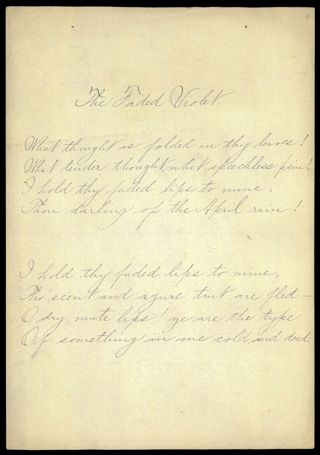 The Faded Violet.
What thought is folded in thy leaves!
What tender thought, what speechless pain!
I hold thy faded lips to mine,
Thou darling of the April rain!
I hold thy faded lips to mine,
Tho' scent and azure tint are fled —
O dry, mute lips! ye are the type
Of something in me cold and dead: